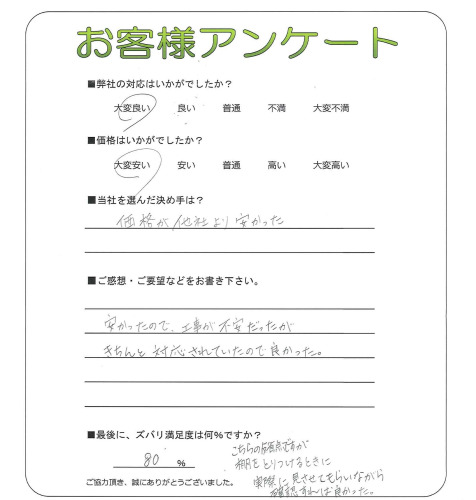 お客様アンケート
■弊社の対応はいかがでしたか？
大変良い 良い 普通 不満 大変不満
■価格はいかがでしたか？
大変安い 安い 普通 高い 大変高い
■当社を選んだ決め手は？
価格が他社より安かった
■ご感想・ご要望などをお書き下さい。
安かったので、工事が不安だったが
きちんと対応されていたので良かった。
■最後に、ズバリ満足度は何％ですか？
80 %
こちらの ですが
をとりつけるときに
実際に見させてもらいながら
確認すれば良かった。
ご協力頂き、誠にありがとうございました。